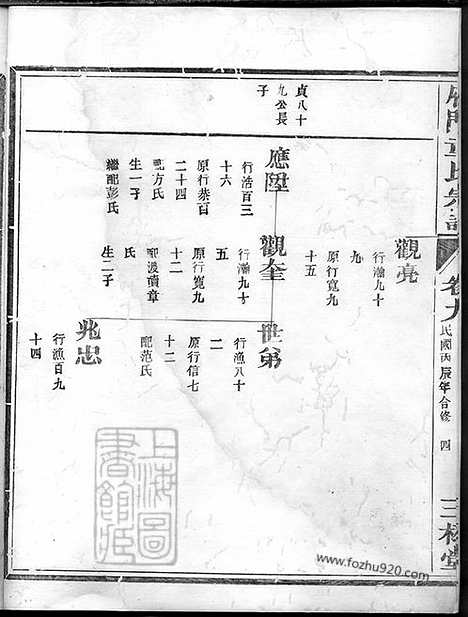 宗譜
卷九
民國丙辰年合修
四
三槐堂
觀亮
行瀚九十
九
原行寬九
十五
貞八十
九公長
子
應陞
行浩百三
十六
原行恭百
二十四
配方氏
生一子
繼配彭氏
觀奎
行瀚九十
五
原行寬九
十
配漢頭章
生二子
世弟
行漁八十
七
原行信七
十六
配范氏
兆忠
行漁百九
十四
上海圖
書館藏
www.fozhu920.com